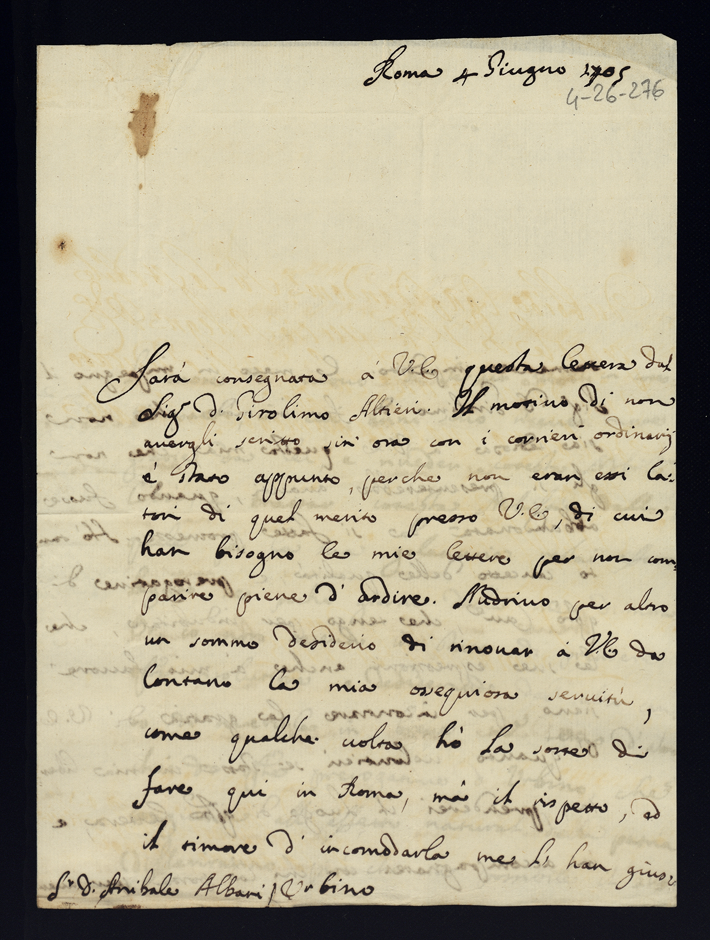 Roma 4 Giugno 1705
4-26-276
Sarà consegnata á V.E. questa lettera dal
Sigr. D. Girolimo Altieri. Il motivo di non
avergli scritto sin ora con i corrieri ordinarij
é stato appunto, perche non eran essi la-
tori di quel merito presso V.E., di cui
han bisogno le mie lettere per non com-
parire piene d'ardire. Nudrivo per altro
un sommo desiderio di rinovar á VE da
lontano la mia ossequiosa servitù,
come qualche volta hó la sorte di
fare qui in Roma, má il rispetto, ed
il timore d'incomodarla me l'han gius-
Sr. D. Anibale Albani / Urbino